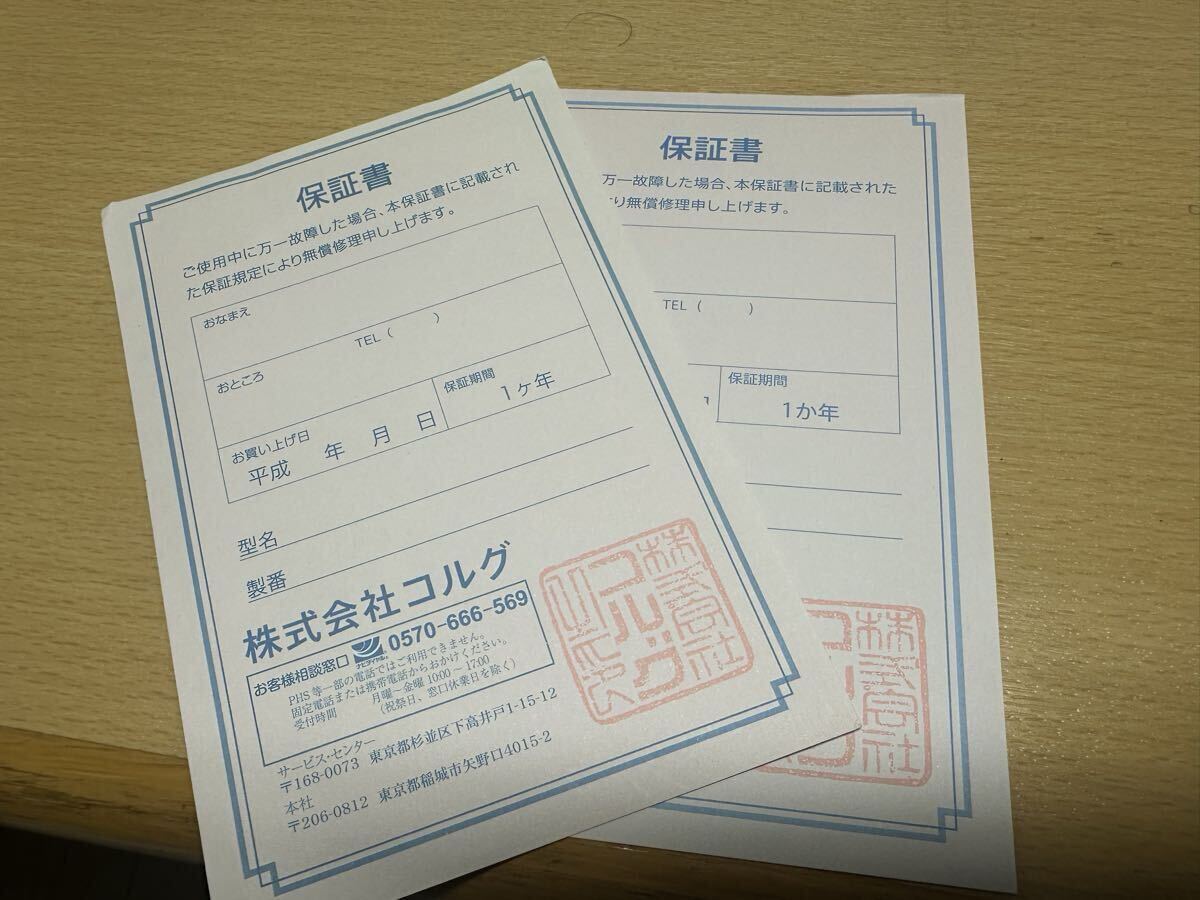 保証書
ご使用中に万一故障した場合、本保証書に記載され
た保証規定により無償修理申し上げます。
おなまえ
おところ
TEL ( )
お買い上げ日
平成 年 月 日
保証期間
1ヶ年
型名
製番
株式会社コルグ
お客様相談窓口 ナビダイヤル 0570-666-569
PHS等一部の電話ではご利用できません。
固定電話または携帯電話からおかけください。
受付時間 月曜～金曜 10:00～17:00
(祝祭日、窓口休業日を除く)
サービス・センター
〒168-0073 東京都杉並区下高井戸1-15-12
本社
〒206-0812 東京都稲城市矢野口4015-2
株式会社
コルグ
保証書
万一故障した場合、本保証書に記載された
り無償修理申し上げます。
TEL ( )
保証期間
1か年
株式会社